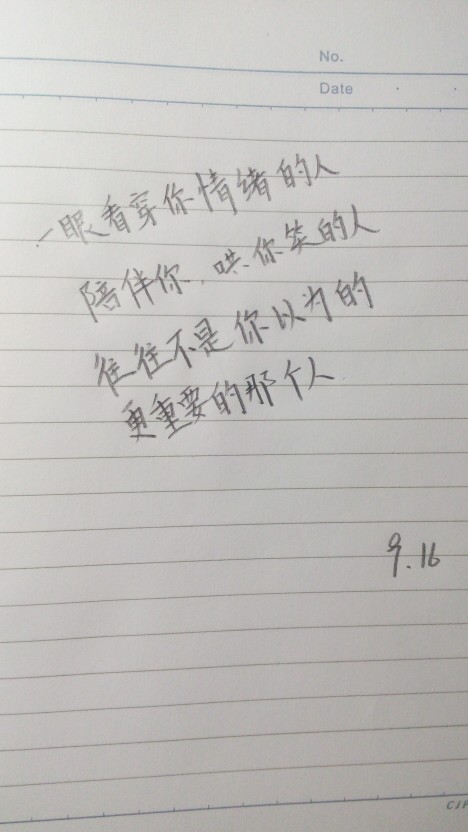 No.
Date
一眼看穿你情绪的人
陪伴你,哄你笑的人
往往不是你以为的
更重要的那个人
9.16